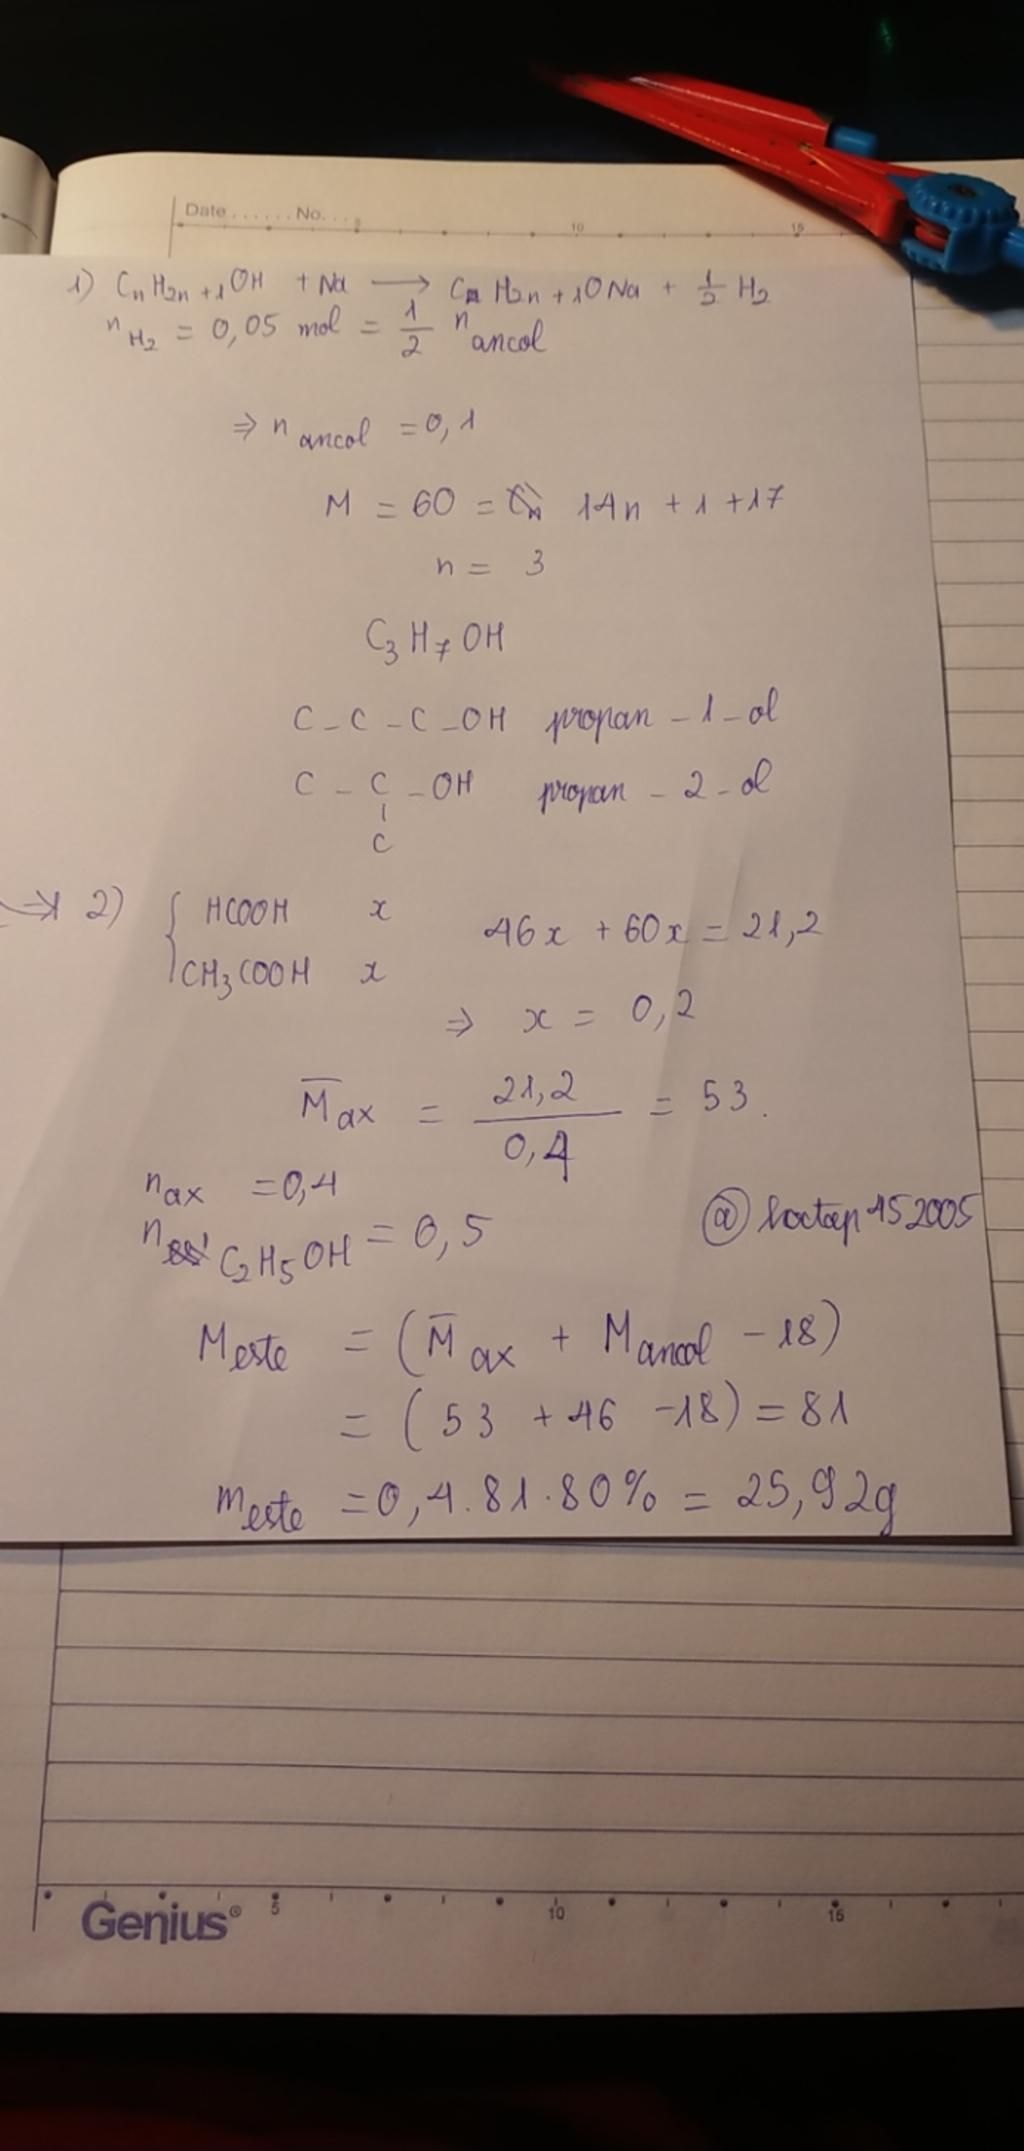 Date ...... No. ...
5 10 15
1) CnH2n+1OH + Na → CnH2n+1ONa + 1/2 H2
nH2 = 0,05 mol = 1/2 n ancol
⇒ n ancol = 0,1
M = 60 = 14n + 1 + 17
n = 3
C3H7OH
C - C - C - OH propan - 1 - ol
C - C - OH propan - 2 - ol
C
→ 2) { HCOOH x
CH3COOH x
46x + 60x = 21,2
⇒ x = 0,2
M̅ax = 21,2 / 0,4 = 53.
nax = 0,4
n C2H5OH = 0,5
@hoctap152005
Meste = (M̅ax + Mancol - 18)
= (53 + 46 - 18) = 81
meste = 0,4.81.80% = 25,92g
Genius®
5 10 15